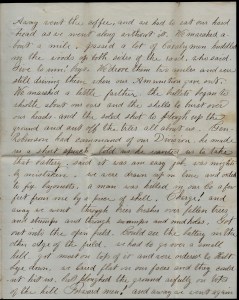 Away went the coffee, and we had to eat our hard
bread as we went along without it. We marched a
bout a mile, passed a lot of cavalrymen huddled
in the woods off both sides of the road, who said
Give to em! boys. We drove them five miles and were
still driving them when our Ammunition gave out.
We marched a little further. The bullets began to
whistle about our ears and the shells to burst over
our heads and the solid shot to plough up the
ground and cut off the trees all about us. Gen
Robinson had command of our Division, he made
us a short speech told the men to take
that battery, said it was an easy job, was mightily
mistaken. we were drawn up in line and ordered
to fix bayonets, a man was killed in our Co a few
feet from me by a piece of shell. Charge! and
away we went through bushes over fallen trees
and stumps and through swamps and mudholes. Got
out into the open field. Could see the battery on the
other edge of the field. as had to go over a small
hill. got most on top of it and were ordered to Halt
lye down. we laved flat on our faces and they could
not hit us, but ploughed the ground awfully on top
of the hill. Forward men! and away we went again